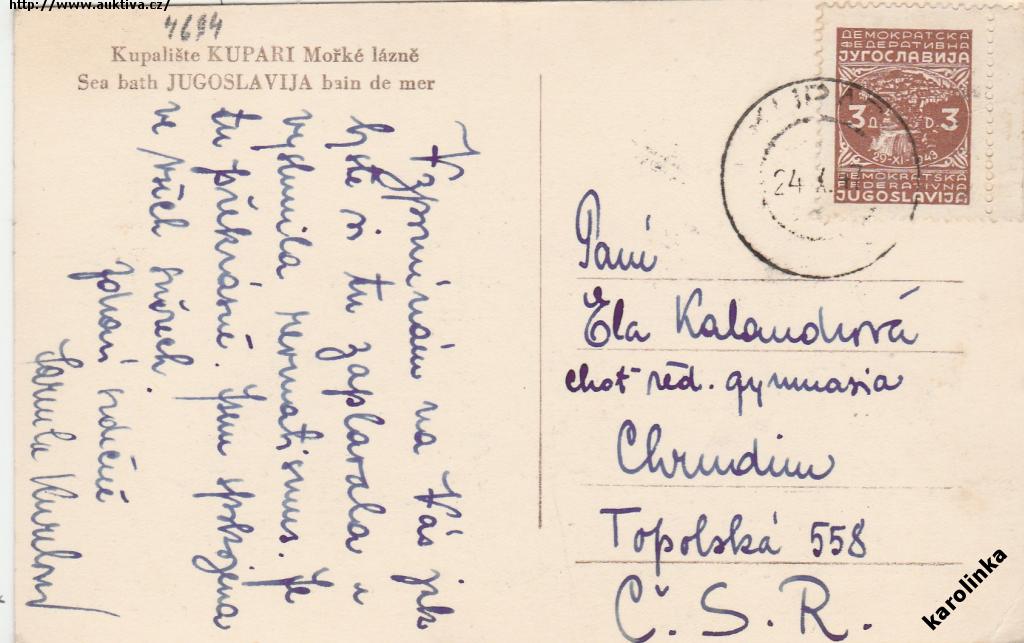 http://www.auktiva.cz/
4694
Kupaliště KUPARI Mořké lázně
Sea bath JUGOSLAVIJA bain de mer
Vzpomínám na Vás jak
byste si tu zaplavala a
vyslunila revmatismus. Je
tu překrásně. Jsem spokojena
ve všech směrech.
Zdraví srdečně
ДЕМОКРАТСКА
ФЕДЕРАТИВНА
ЈУГОСЛАВИЈА
3 Д. D. 3
29-XI-1943
DEMOKRATSKA
FEDERATIVNA
JUGOSLAVIJA
24 X
Paní
Ela Kalandrová
choť řed. gymnasia
Chrudim
Topolská 558
Č.S.R.
karolinka